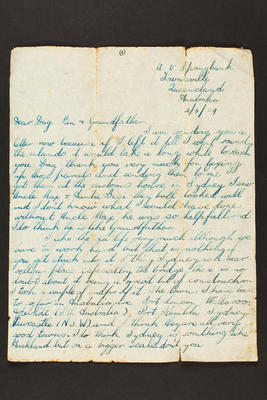 (1)
M. V. Springbank
Townsville
Queensland
Australia
2/6/29
Dear Dag Gin & Grandfather
I am sending you a
letter now because if I left it till I went round
the islands it would take a long while to reach
you. Dag thank you very much for fixing
up those parcels and sending them to me. I
got them at the customs house in Sydney. I saw
Uncle Hap & Auntie Bee they both looked well
and I don't know what I would have done
without Uncle Hap he was so helpful and
I do think he is like grandfather.
I like the sea life very much although you
have to work hard but that is nothing if
you get stuck into it. I think Sydney is a
place especially the bridge there is no
doubt about it being a great bit of construction
I took a couple of of it. The town I have been
to so far in Australia are Port Lincoln Wallaroo
Adelaide (Sth Australia), Port Kembla Sydney
Newcastle (N.S.W) and I think they are all very
good towns. I do think Sydney is something like
Auckland but on a bigger scale don't you